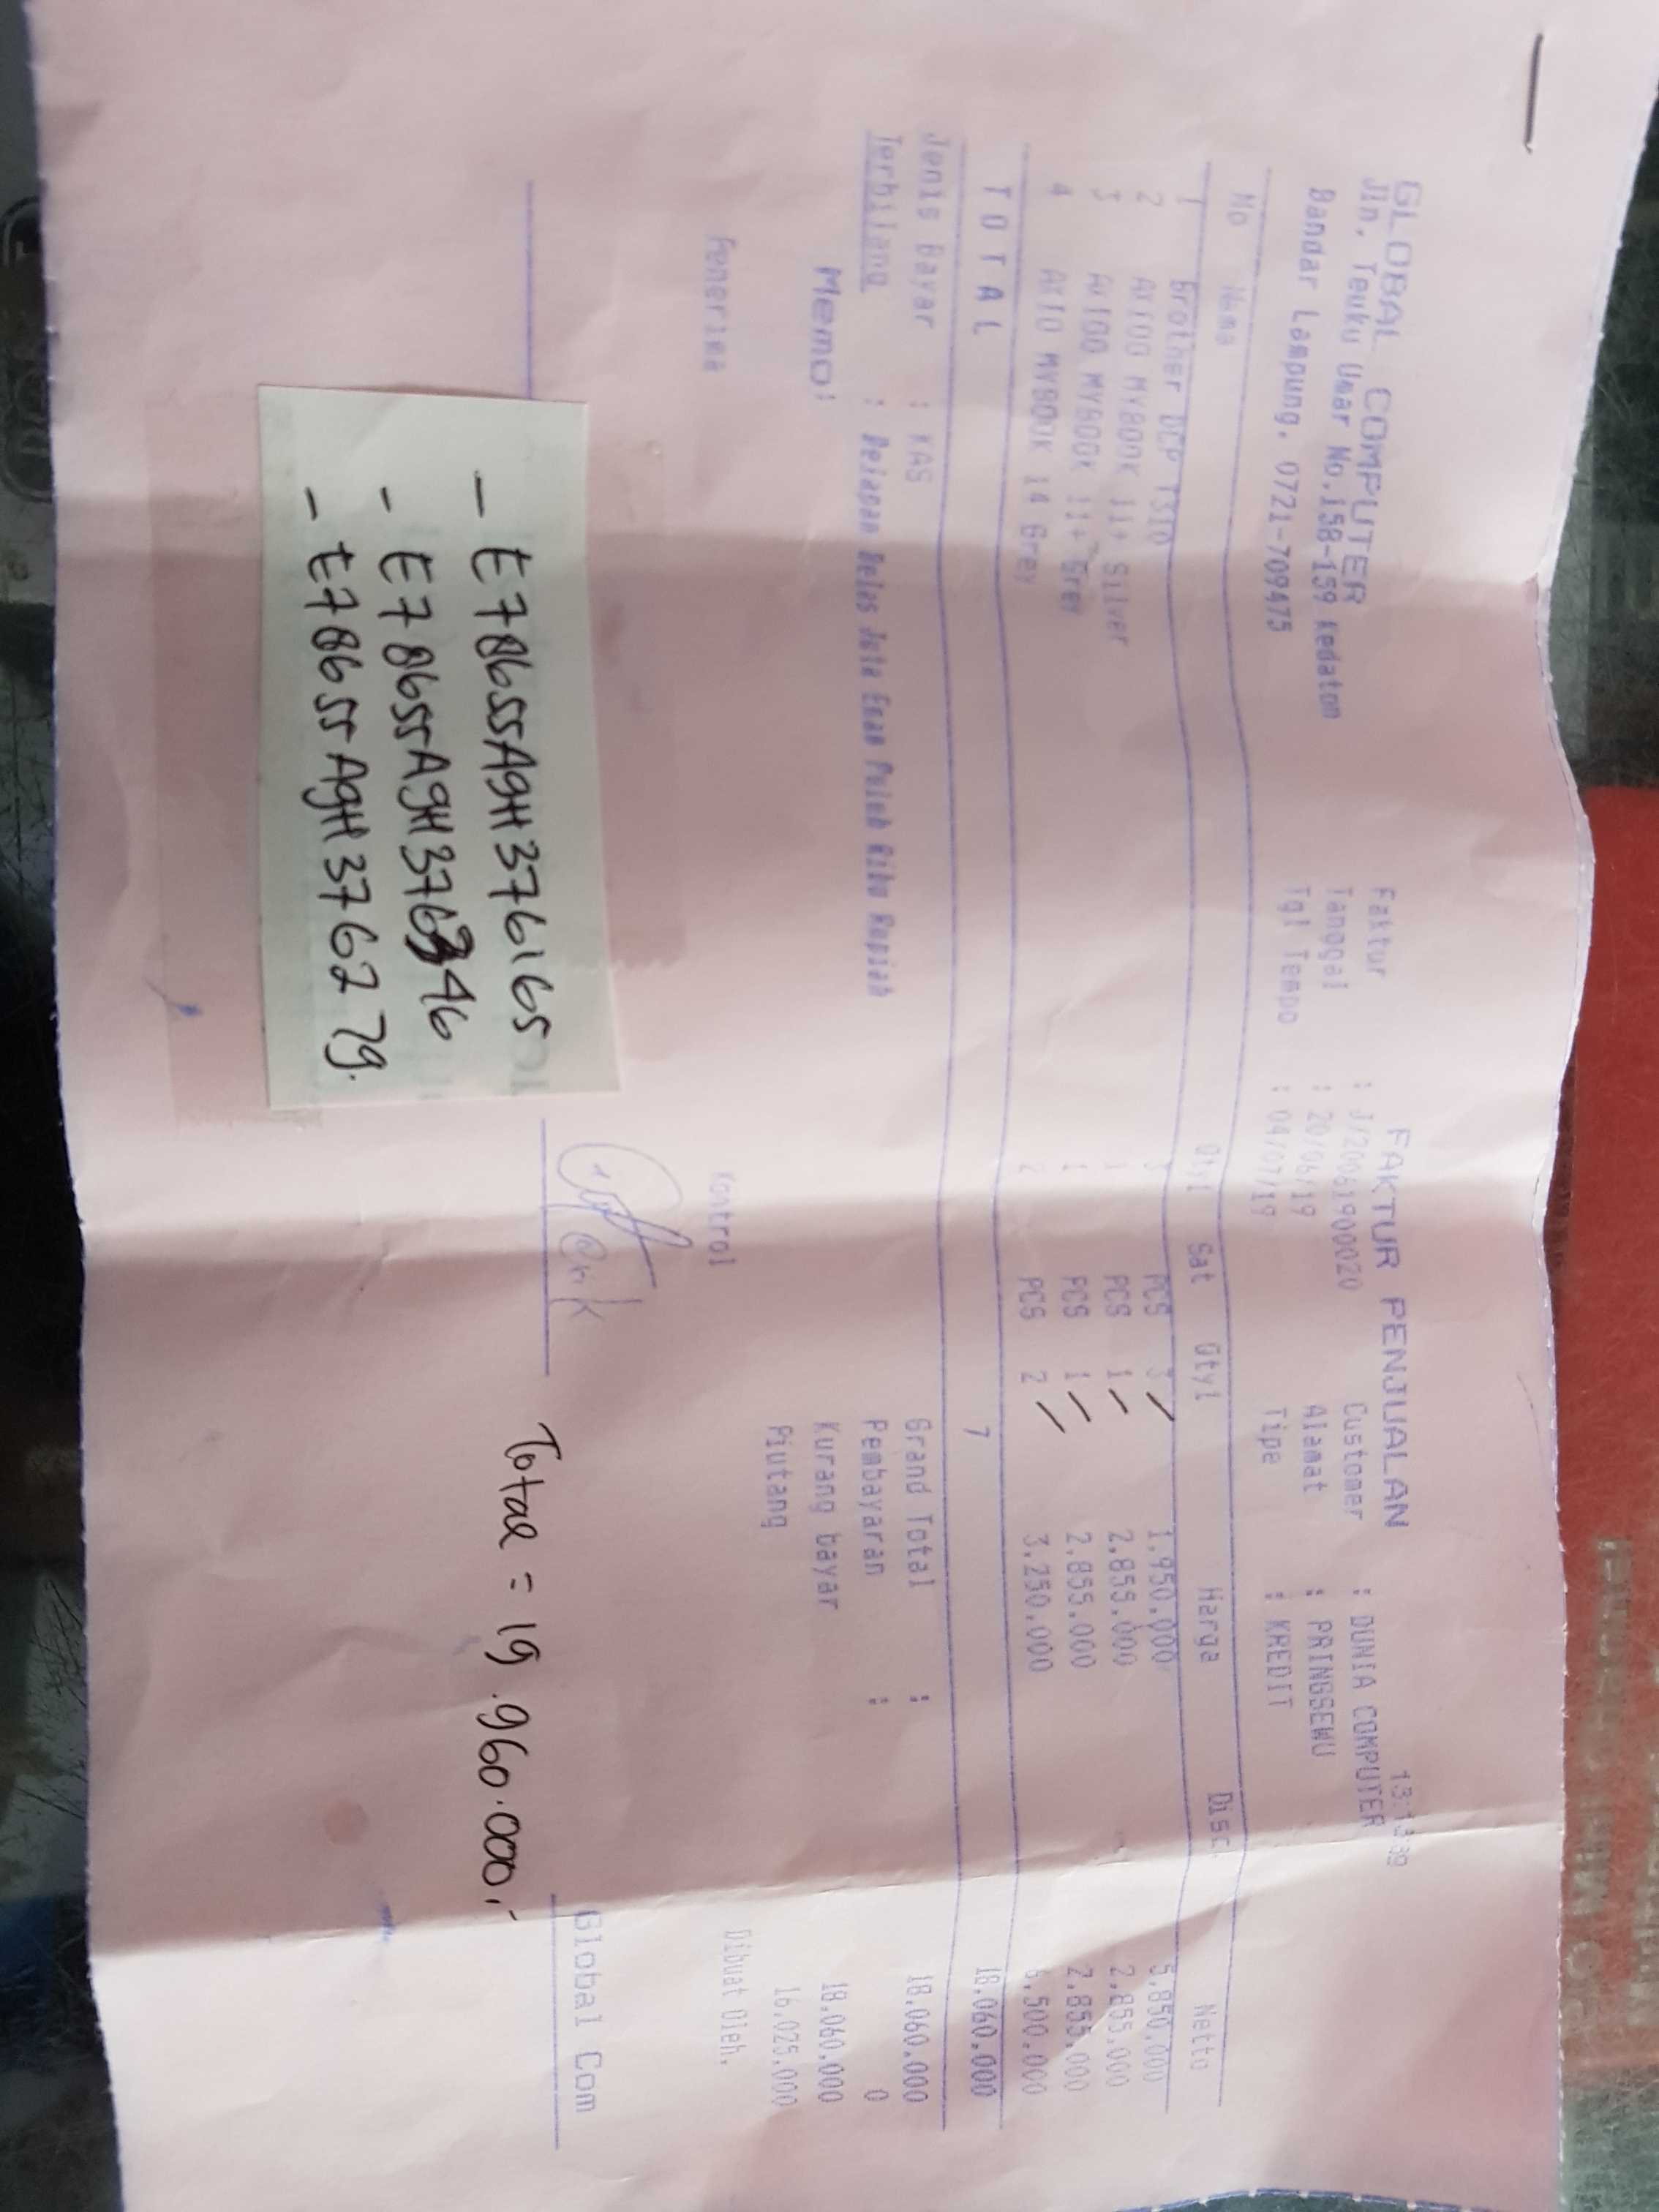 13:13:39
GLOBAL COMPUTER FAKTUR PENJUALAN
Jln. Teuku Umar No.158-159 Kedaton Faktur : J/200619000020 Customer : DUNIA COMPUTER
Bandar Lampung. 0721-709475 Tanggal : 20/06/19 Alamat : PRINGSEWU
Tgl Tempo : 04/07/19 Tipe : KREDIT
No Nama Qty1 Sat Qty1 Harga Disc Netto
1 Brother DCP T310 3 PCS 3 1.950.000 5.850.000
2 AXIOO MYBOOK 11+ Silver 1 PCS 1 2.855.000 2.855.000
3 AXIOO MYBOOK 11+ Grey 1 PCS 1 2.855.000 2.855.000
4 AXIO MYBOOK 14 Grey 2 PCS 2 3.250.000 6.500.000
T O T A L 7 18.060.000
Jenis Bayar : KAS Grand Total : 18.060.000
Terbilang : Delapan Belas Juta Enam Puluh Ribu Rupiah Pembayaran : 0
Memo: Kurang bayar 18.060.000
Piutang 16.025.000
Penerima Kontrol Dibuat Oleh,
Global Com
- E78655A9H376165
- E78655A9H376
- E78655A9H376279.
Total = 19.960.000,-